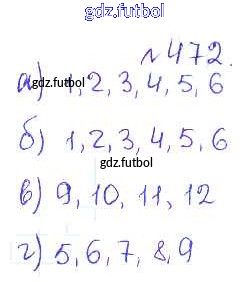 gdz.futbol
№472.
а) 1, 2, 3, 4, 5, 6
gdz.futbol
б) 1, 2, 3, 4, 5, 6
gdz.futbol
в) 9, 10, 11, 12
г) 5, 6, 7, 8, 9